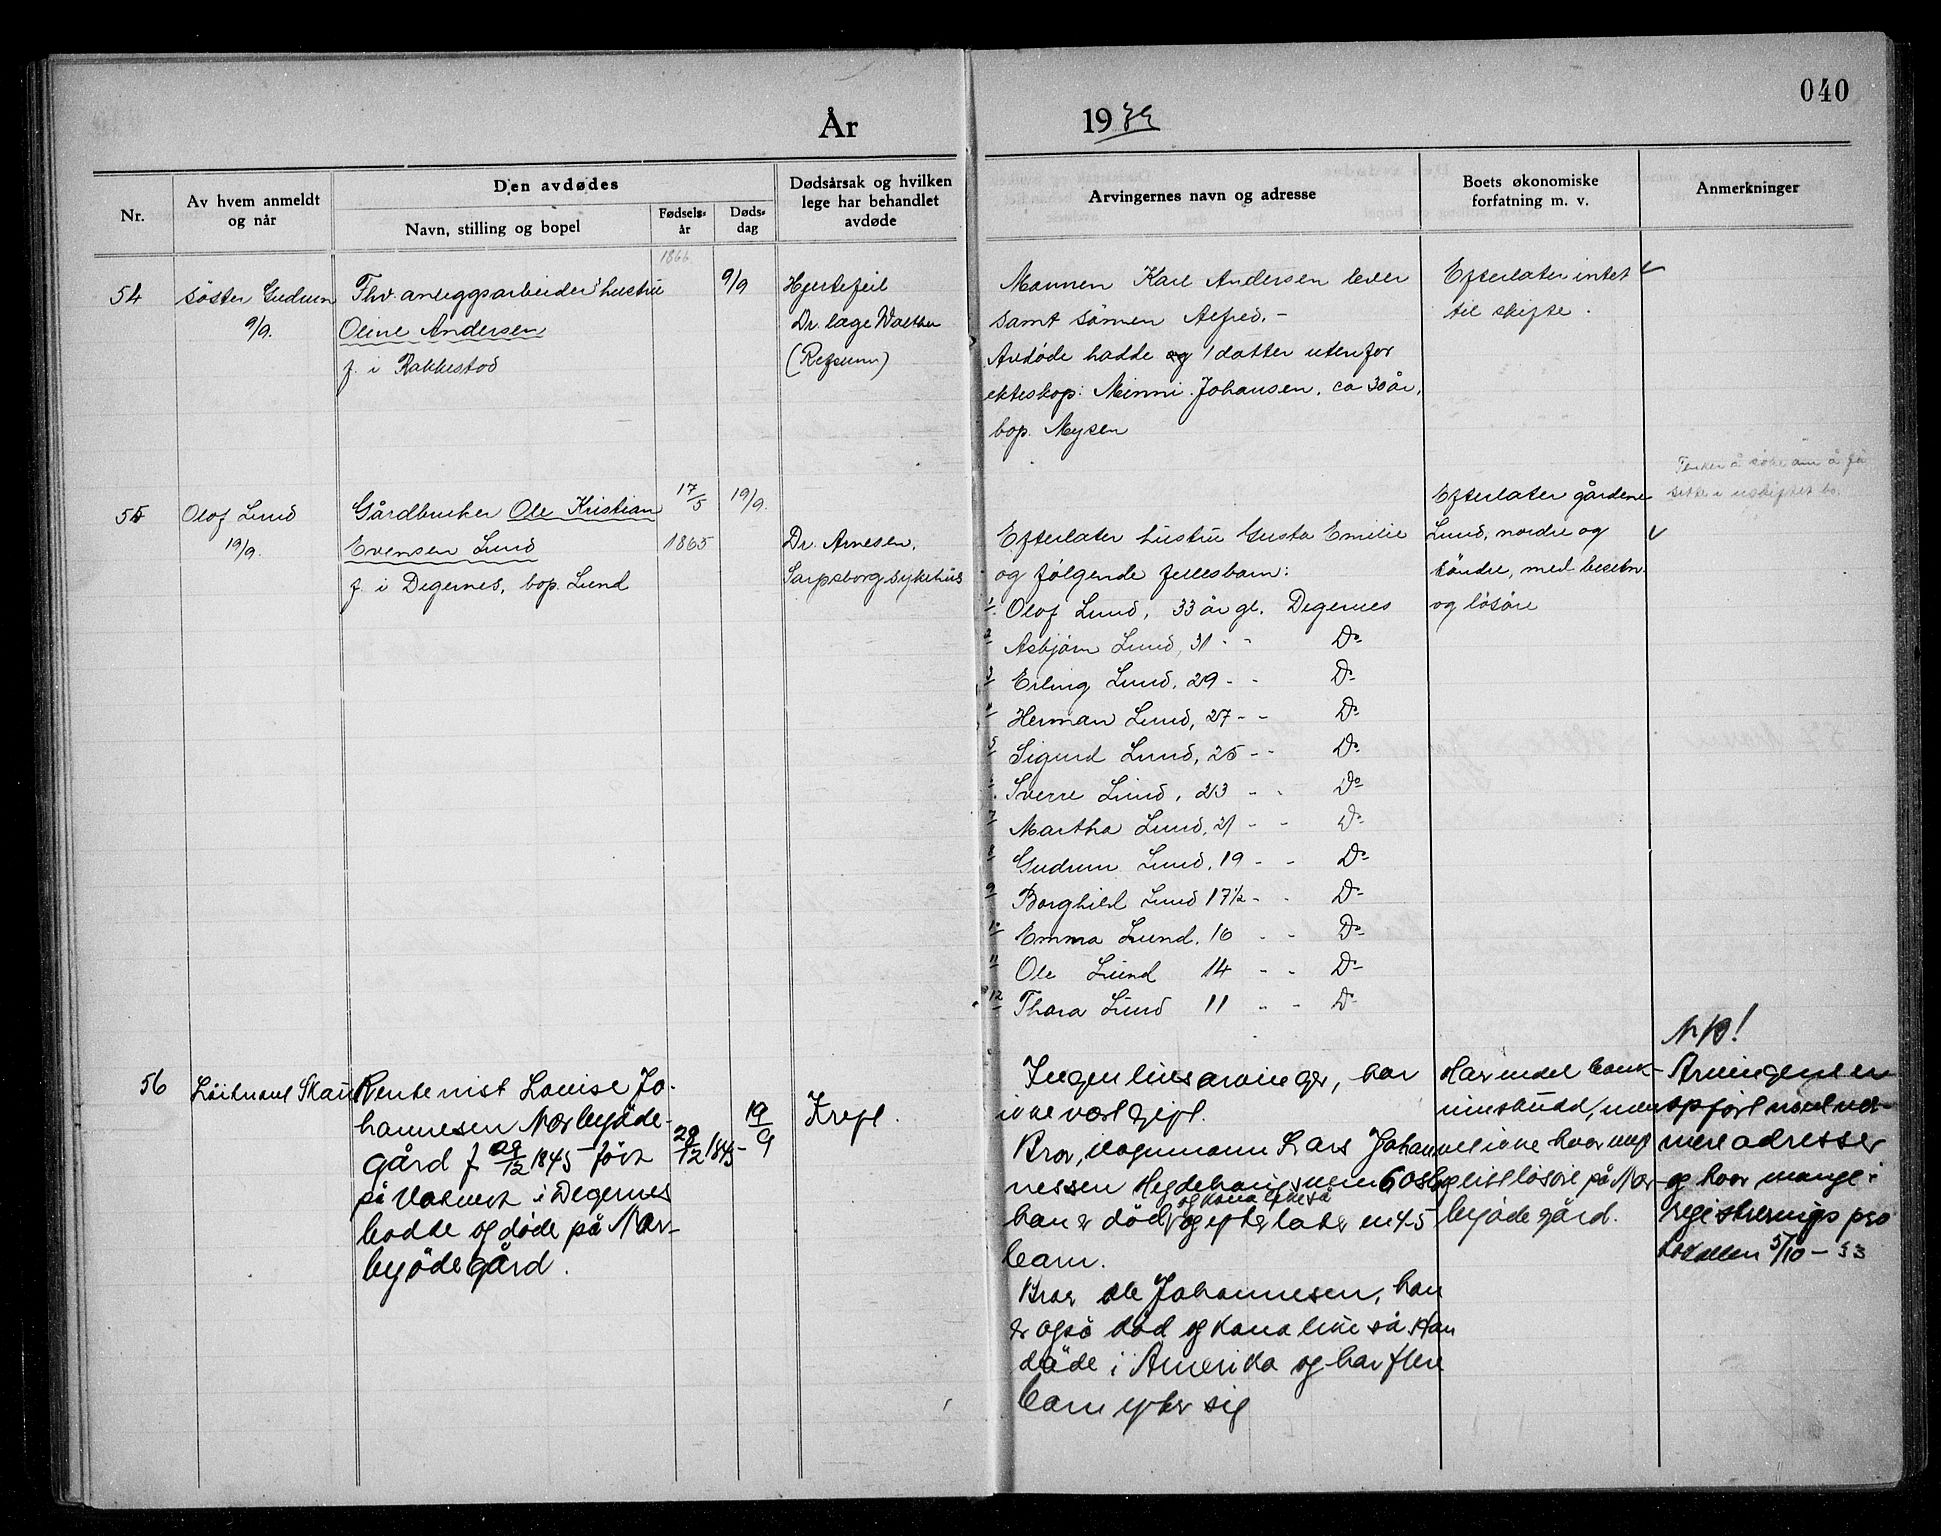 040
År 19
Nr.
Av hvem anmeldt
og når
Den avdødes
Navn, stilling og bopel
Fødsels-
år
Døds-
dag
Dødsårsak og hvilken
lege har behandlet
avdøde
Arvingernes navn og adresse
Boets økonomiske
forfatning m. v.
Anmerkninger
54
søster Gudrun
9/9.
Fhv. anleggsarbeider's hustru
Oline Andersen
f. i Rakkestad
1866
9/9
Hjertefeil
Dr. læge Walther
(Refsum)
Mannen Karl Andersen lever
samt sønnen Alfred. -
Avdøde hadde og 1 datter utenfor
ekteskap: Minni Johansen, ca 30 år,
bop. Mysen
Efterlater intet
til skifte.
55
Olaf Lund
19/9.
Gårdbruker Ole Kristian
Evensen Lund
f. i Degernes, bop. Lund
17/5
1865
19/9.
Dr. Arnesen,
Sarpsborg sykehus
Efterlater hustru Gusta Emilie
og følgende fellesbarn:
1. Olaf Lund, 33 år gl. Degernes
2 Asbjørn Lund, 31 - - Do
3 Erling Lund, 29 - - Do
4 Herman Lund, 27 - - Do
5 Sigurd Lund, 25 - - Do
Sverre Lund, 23 - - Do
7 Martha Lund, 21 - - Do
8 Gudrun Lund, 19 - - Do
9 Borghild Lund 17½ - - Do
10 Emma Lund, 16 - - Do
11 Ole Lund 14 - - Do
12 Thora Lund 11 - - Do
Efterlater gårdene
Lund, nordre og
söndre, med besetn.
og løsöre
Tenker å söke om å få
sitte i uskiftet bo.
56
Löitnant Skau
Rentenist Lovise Jo-
hannesen Nærbyöde-
gård f 29/12 1845 - född
på i Degernes
bodde og döde på Nær-
byödegård.
29/12 1845
19/9
Kreft.
Ingen livsarvinger, har
ikke vært gift.
Bror, vognmann Lars Johan
nessen Hegdehaugsveien 6 Oslo
han er död og kona likeså og efterlater en 4-5
barn.
Bror Ole Johannesen, han
er også död og kona like så Han
döde i Amerika og har flere
barn efter sig
Har endel bank-
innskudd, men
vet ikke hvor meget
og litt lösöre på Nær-
byödegård.
NB!
Arvingene er
opfört med nær-
mere adresser
og hvor mange i
registrerings pro
tokollen 5/10 - 33